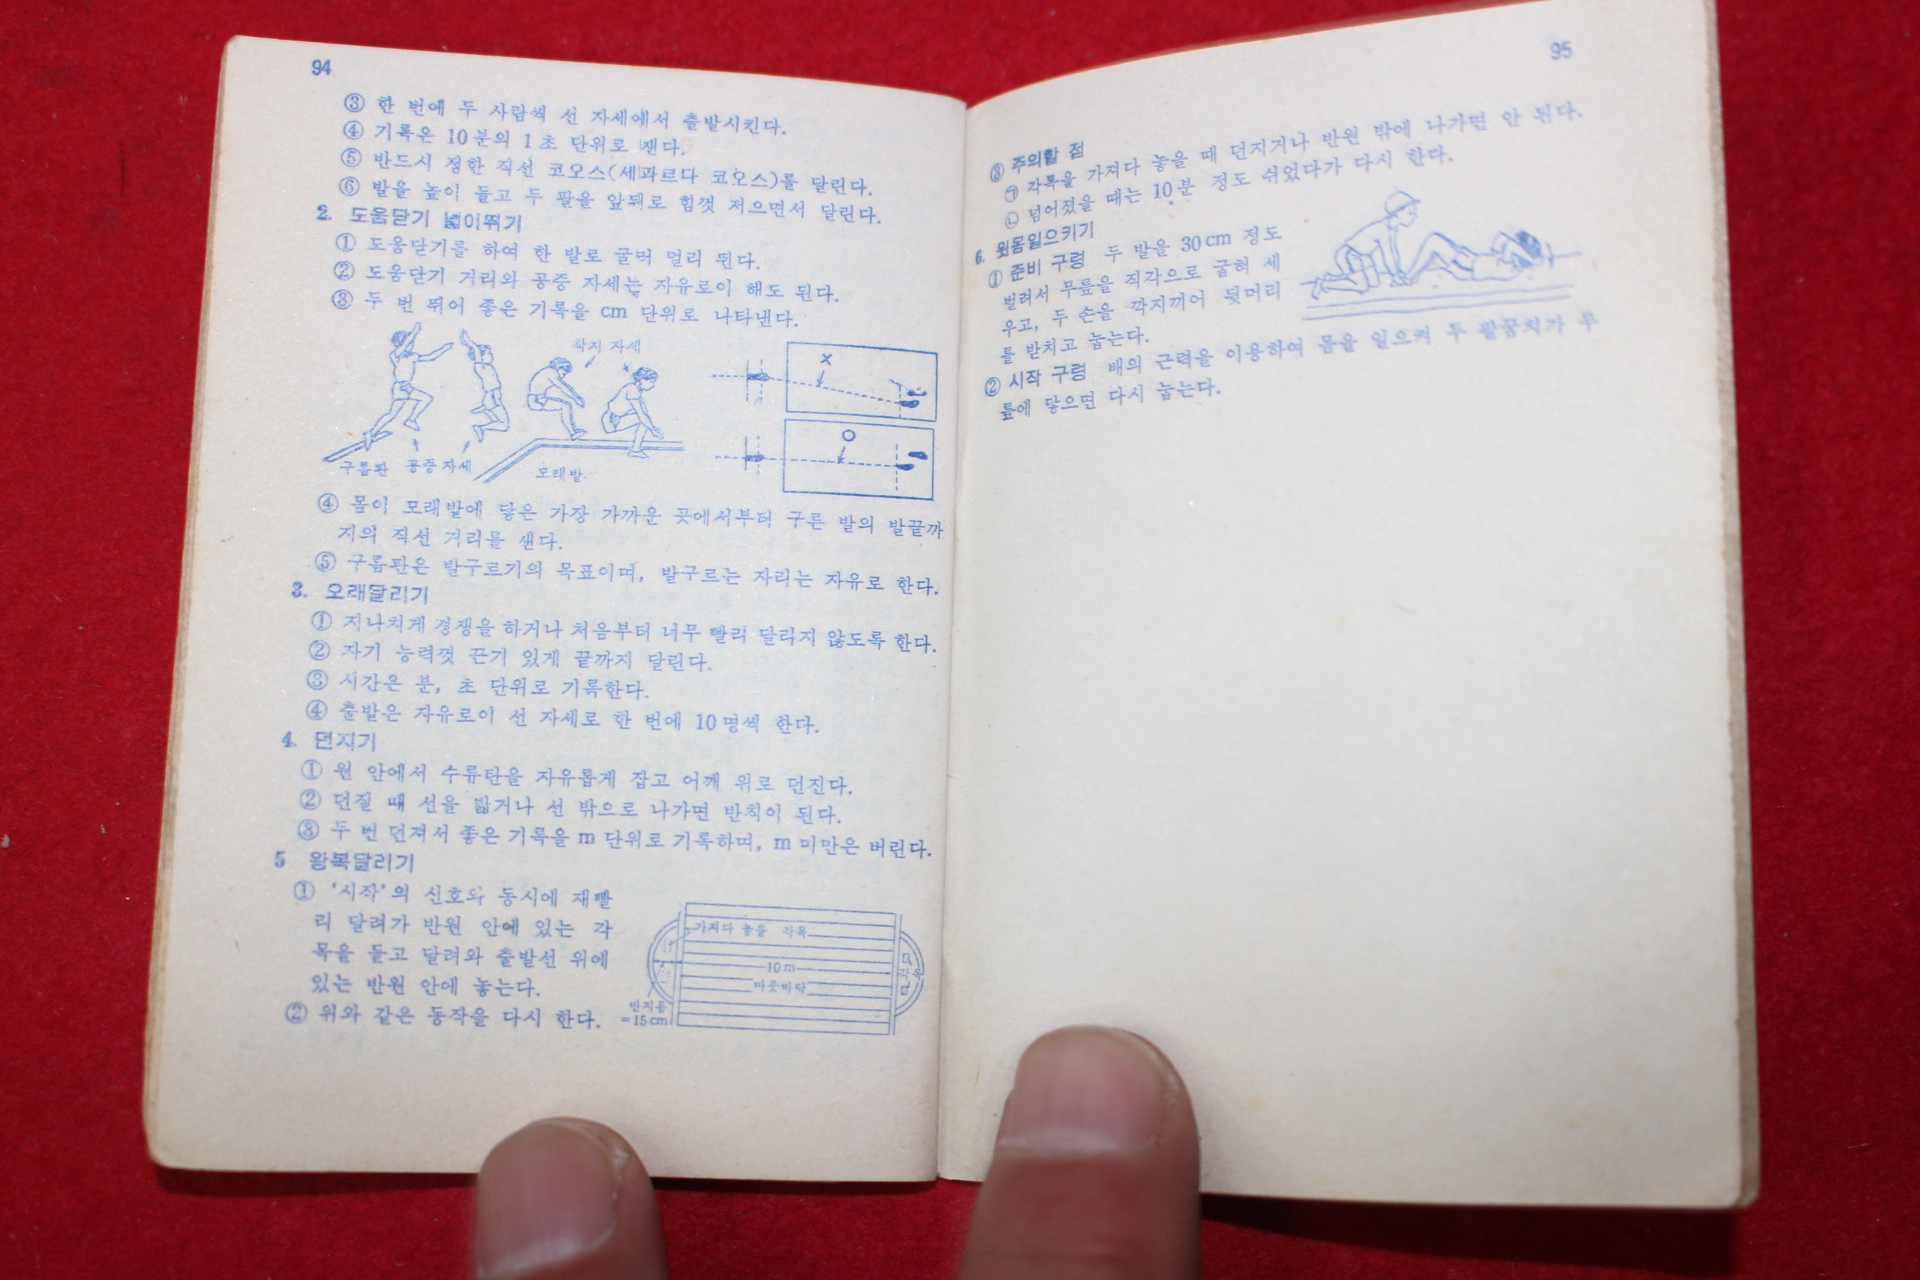 94
③ 한 번에 두 사람씩 선 자세에서 출발시킨다.
④ 기록은 10분의 1초 단위로 잰다.
⑤ 반드시 정한 직선 코오스(세파르다 코오스)를 달린다.
⑥ 발을 높이 들고 두 팔을 앞뒤로 힘껏 저으면서 달린다.
2. 도움닫기 넓이뛰기
① 도움닫기를 하여 한 발로 굴러 멀리 뛴다.
② 도움닫기 거리와 공중 자세는 자유로이 해도 된다.
③ 두 번 뛰어 좋은 기록을 cm 단위로 나타낸다.
착지 자세
×
○
구름판 공중자세
모래밭
④ 몸이 모래밭에 닿은 가장 가까운 곳에서부터 구른 발의 발끝까
지의 직선 거리를 잰다.
⑤ 구름판은 발구르기의 목표이며, 발구르는 자리는 자유로 한다.
3. 오래달리기
① 지나치게 경쟁을 하거나 처음부터 너무 빨리 달리지 않도록 한다.
② 자기 능력껏 끈기 있게 끝까지 달린다.
③ 시간은 분, 초 단위로 기록한다.
④ 출발은 자유로이 선 자세로 한 번에 10명씩 한다.
4. 던지기
① 원 안에서 수류탄을 자유롭게 잡고 어깨 위로 던진다.
② 던질 때 선을 밟거나 선 밖으로 나가면 반칙이 된다.
③ 두 번 던져서 좋은 기록을 m 단위로 기록하며, m 미만은 버린다.
5 왕복달리기
① '시작'의 신호와 동시에 재빨
리 달려가 반원 안에 있는 각
목을 들고 달려와 출발선 위에
있는 반원 안에 놓는다.
② 위와 같은 동작을 다시 한다.
가져다 놓을 각목
10m
마룻바닥
각목
반지름
=15cm
95
③ 주의할 점
㉠ 각목을 가져다 놓을 때 던지거나 반원 밖에 나가면 안 된다.
㉡ 넘어졌을 때는 10분 정도 쉬었다가 다시 한다.
6. 윗몸일으키기
① 준비 구령 두 발을 30cm 정도
벌려서 무릎을 직각으로 굽혀 세
우고, 두 손을 깍지끼어 뒷머리
를 받치고 눕는다.
② 시작 구령 배의 근력을 이용하여 몸을 일으켜 두 팔꿈치가 무
릎에 닿으면 다시 눕는다.